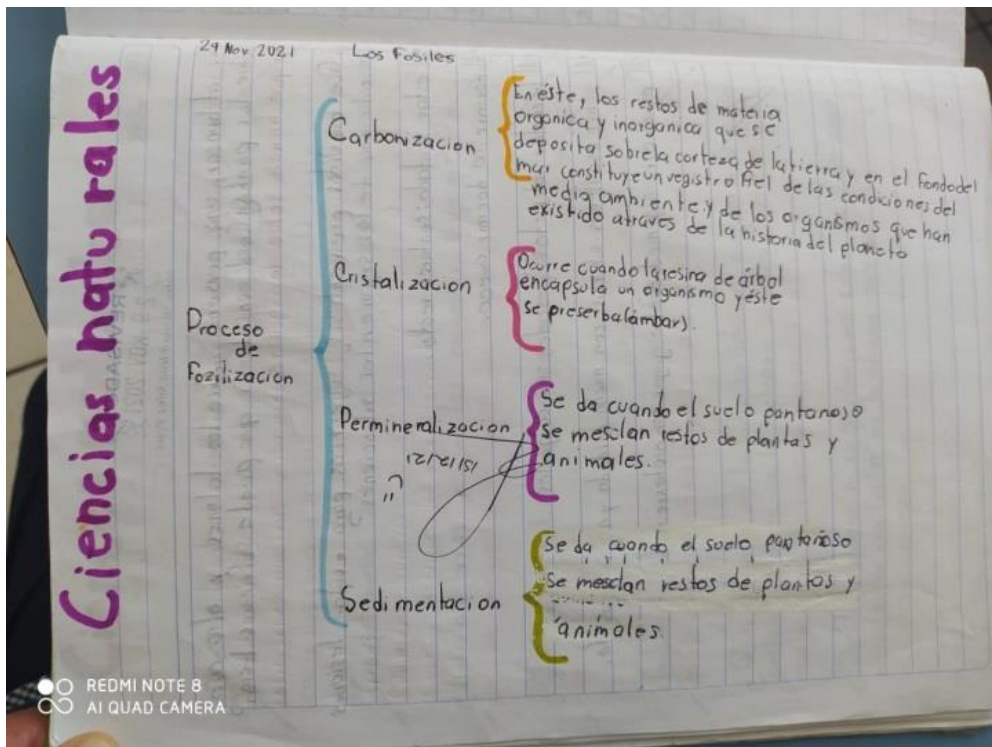 Ciencias naturales
29 Nov 2021
Los Fosiles
Proceso
de
Fozilizacion
Carbonizacion
En éste, los restos de materia
organica y inorganica que se
deposita sobre la corteza de la tierra y en el fondo del
mar constituye un registro fiel de las condiciones del
medio ambiente y de los organismos que han
existido atraves de la historia del planeta
Cristalizacion
Ocurre cuando la resina de árbol
encapsula un organismo y éste
se preserba(ámbar).
Permineralizacion
15/12/21
Se da cuando el suelo pantanoso
se mesclan restos de plantas y
animales.
Sedimentacion
Se da cuando el suelo pantanoso
se mesclan restos de plantas y
animales.
REDMI NOTE 8
AI QUAD CAMERA